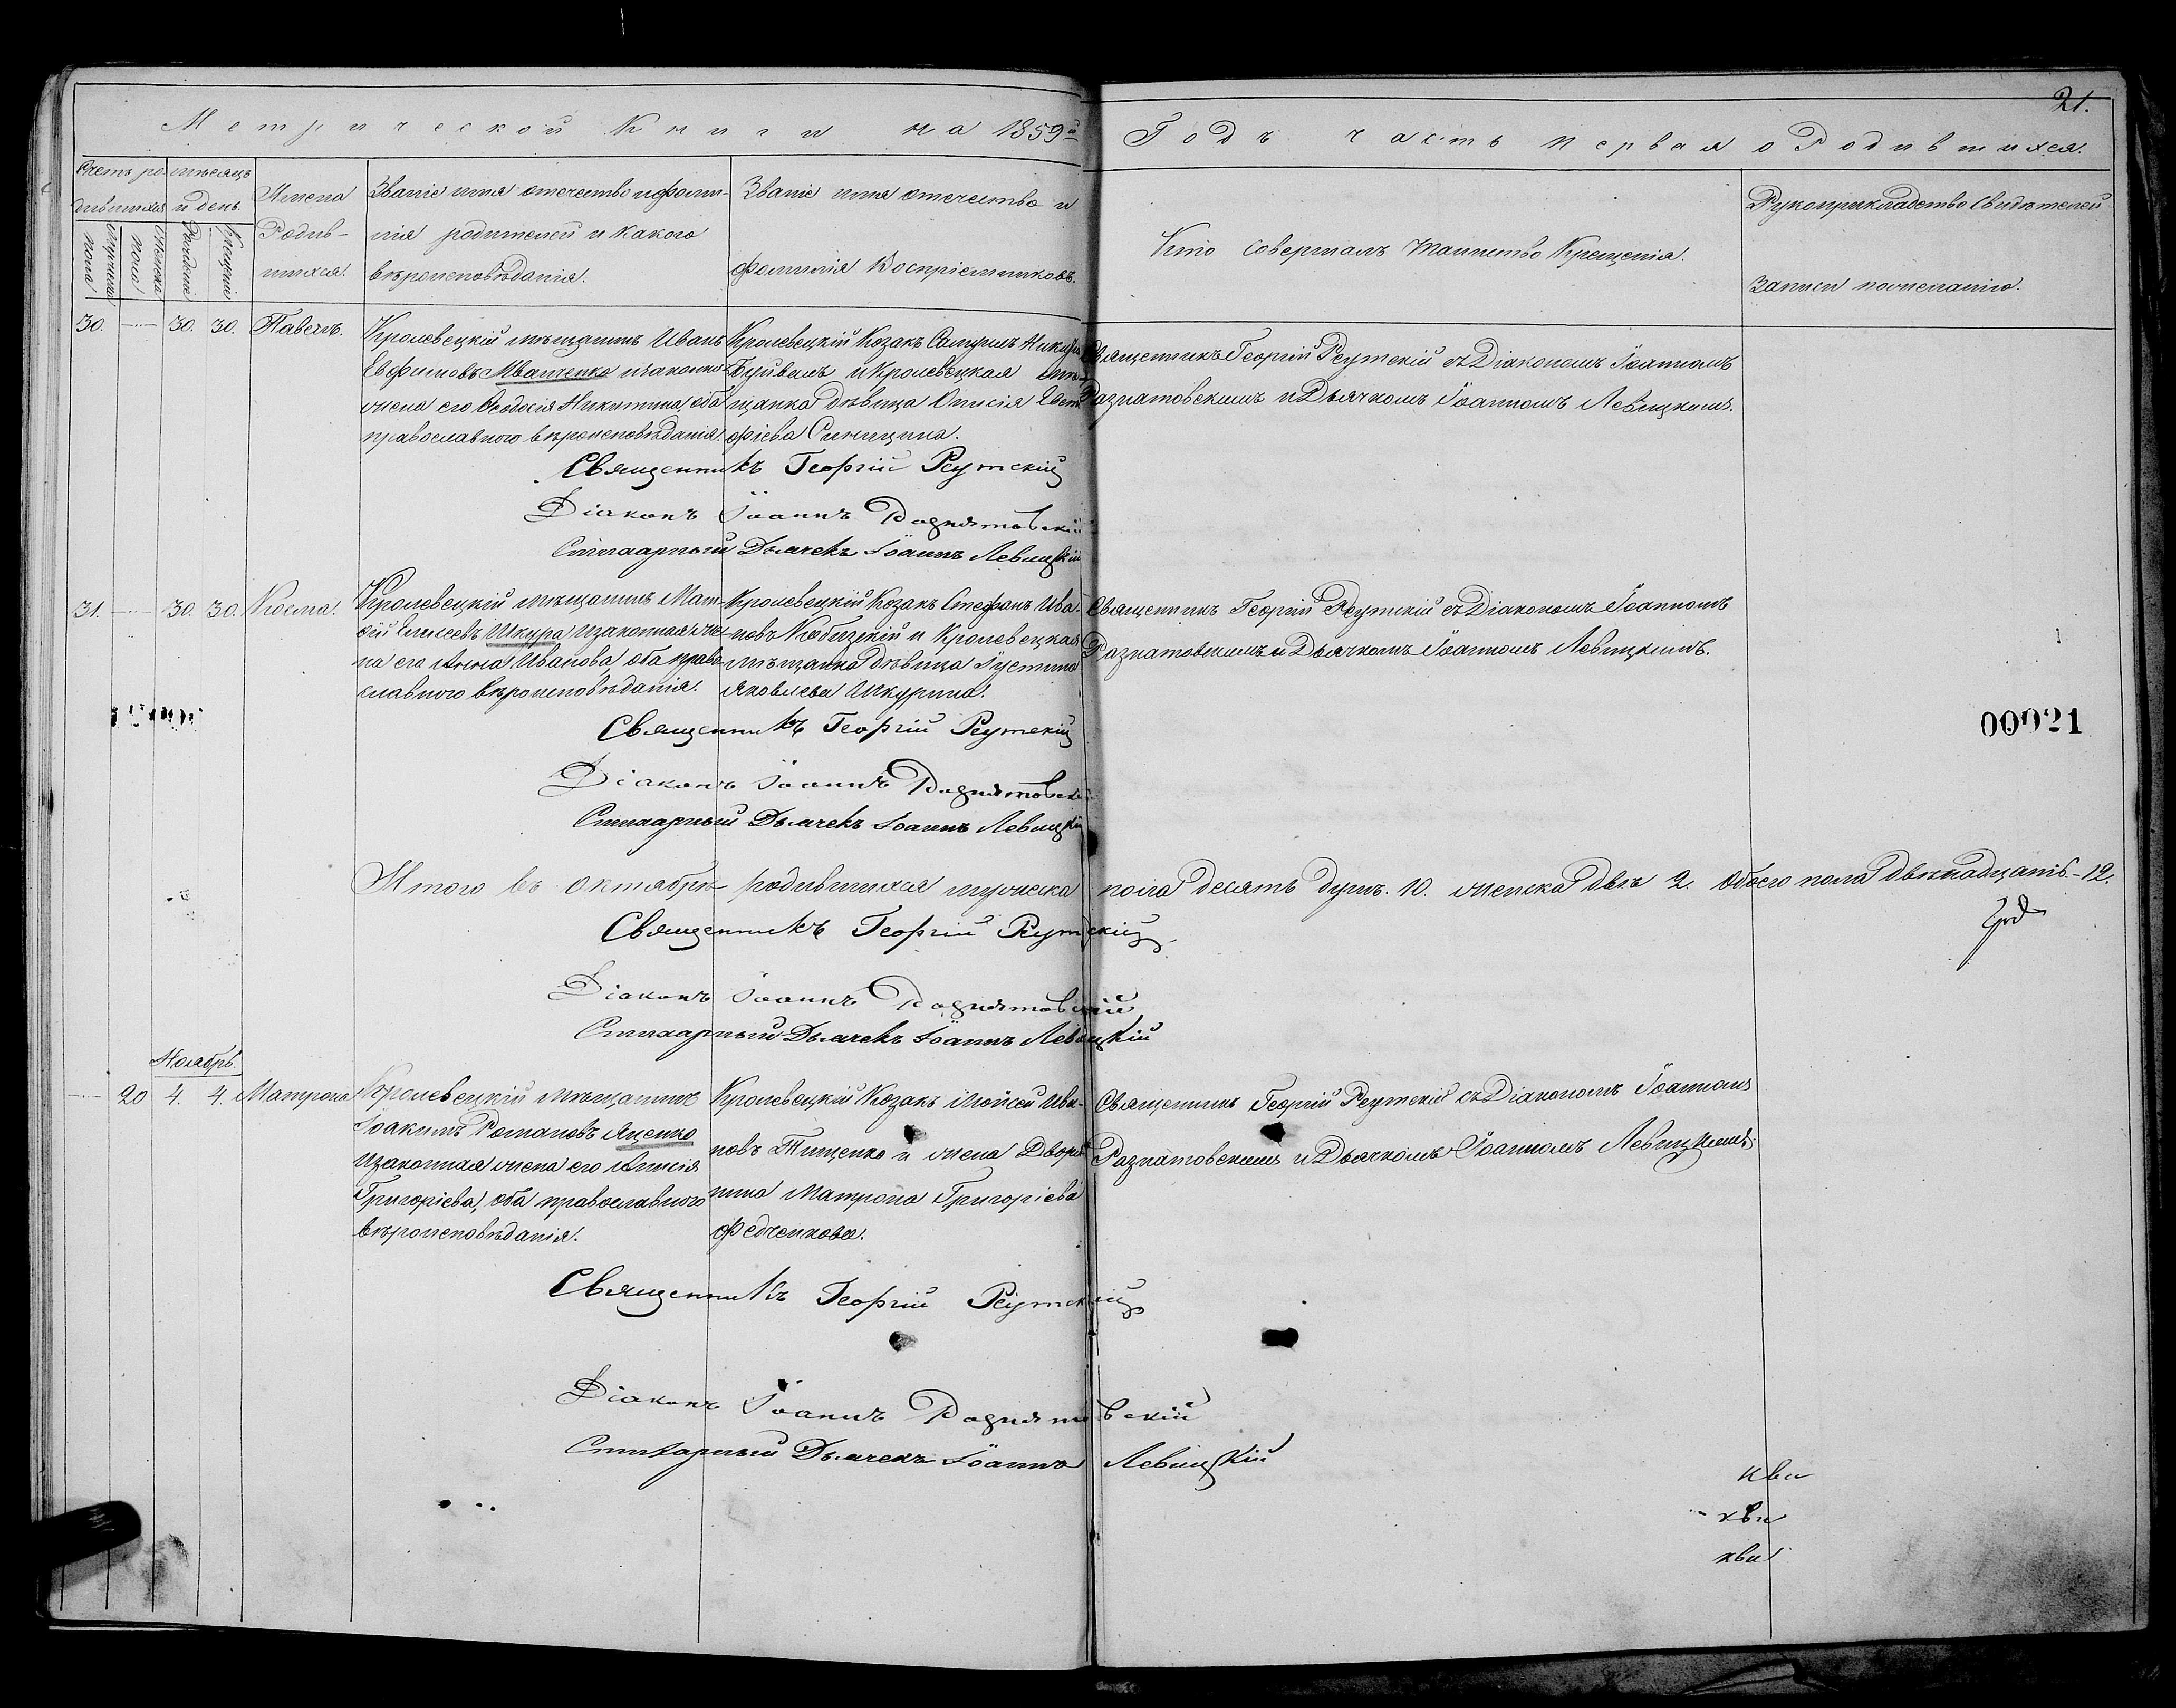 21.
Метрической Книги на 1859й Годъ часть первая о Родившихся.
Счетъ родившихся
мѣсяцъ и день.
Мужеска пола
Женска пола
Рожденія
Крещенія
Имена Родившихся.
Званіе имя отечество и фамилія родителей и какого вѣроисповѣданія.
Званіе имя отечество и фамилія Воспріемниковъ.
Кто совершалъ таинство Крещенія.
Рукоприкладство Свидѣтелей
записи по желанію.
30. — 30. 30. Павелъ.
Кролевецкій мѣщанинъ Иванъ
Евфимовъ Иванченко и законная
жена его Ѳеодосія Никитина, оба
православного вѣроисповѣданія.
Кролевецкій Козакъ
Буйвалъ и Кролевецкая
щанка дѣвица
фіева Синицина.
Священникъ Георгій Реутскій съ Діакономъ Іоанномъ
Разнатовскимъ и Дьячкомъ Іоанномъ Левицкимъ.
Священникъ Георгій Реутскій
Діаконъ Іоаннъ Разнатовскій
Стихарный Дьячекъ Іоаннъ Левицкій
31. — 30. 30. Косма.
Кролевецкій мѣщанинъ Мат-
фій Елисеевъ Шкура и законная же-
на его Анна Иванова оба право-
славного вѣроисповѣданія.
Кролевецкій Козакъ Стефанъ Ива-
новъ Кобизскій и Кролевецкая
мѣщанка дѣвица Іустина
Яковлева Шкурина.
Священникъ Георгій Реутскій съ Діакономъ Іоанномъ
Разнатовскимъ и Дьячкомъ Іоанномъ Левицкимъ.
00021
Священникъ Георгій Реутскій
Діаконъ Іоаннъ Разнатовскій
Стихарный Дьячекъ Іоаннъ Левицкій
Итого въ октябрѣ родившихся мужеска пола десять душъ. 10. женска двѣ 2. Обоего пола двѣнадцать - 12.
Священникъ Георгій Реутскій
Діаконъ Іоаннъ Разнатовскій
Стихарный Дьячекъ Іоаннъ Левицкій
Ноябрь.
— 20 4. 4. Матрона
Кролевецкій мѣщанинъ
Іоакимъ Романовъ Яценко
и законная жена его Анисія
Григоріева, оба православного
вѣроисповѣданія.
Кролевецкій Козакъ Моисей Ива-
новъ Тищенко и жена Дворя-
нина Матрона Григоріева
Федченкова.
Священникъ Георгій Реутскій съ Діакономъ Іоанномъ
Разнатовскимъ и Дьячкомъ Іоанномъ Левицкимъ.
Священникъ Георгій Реутскій
Діаконъ Іоаннъ Разнатовскій
Стихарный Дьячекъ Іоаннъ Левицкій